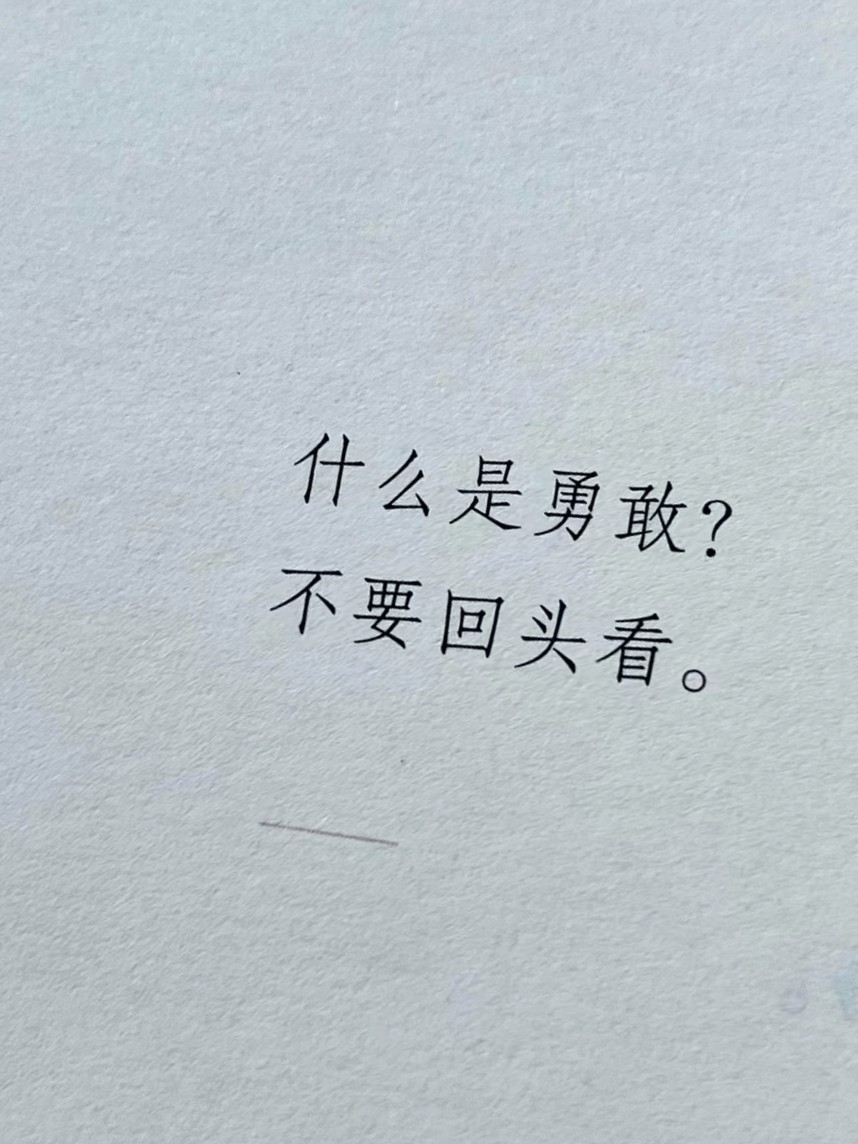 什么是勇敢?
不要回头看。